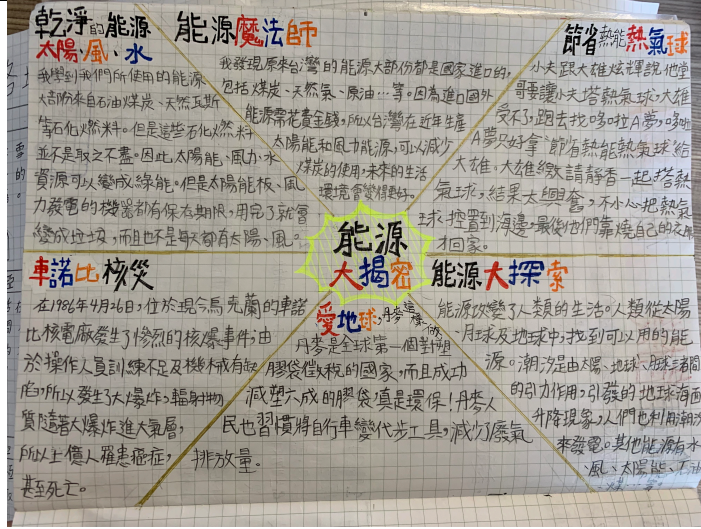 乾淨的能源
太陽、風、水
我學到我們所使用的能源
大部份來自石油煤炭、天然瓦斯
等石化燃料。但是這些石化燃料
並不是取之不盡。因此太陽能、風力、水
資源可以變成綠能。但是太陽能板、風
力發電的機器都有保存期限,用完了就會
變成垃圾,而且也不是每天都有太陽、風。
能源魔法師
我發現原來台灣的能源大部份都是國家進口的,
包括煤炭、天然氣、原油…等。因為進口國外
能源需花費金錢,所以台灣在近年生產
太陽能和風力能源,可以減少
煤炭的使用,未來的生活
環境會變得更好。
節省熱能熱氣球
小夫跟大雄炫耀說他堂
哥要讓小夫搭熱氣球,大雄
受不了,跑去找哆啦A夢,哆啦
A夢只好拿"節省熱能熱氣球"給
大雄。大雄邀請靜香一起搭熱
氣球,結果太興奮,不小心把熱氣
球控置到海邊,最後他們靠燒自己的衣服
才回家。
能源
大揭密
車諾比核災
在1986年4月26日,位於現今烏克蘭的車諾
比核電廠發生了慘烈的核爆事件,由
於操作人員訓練不足及機械有缺
陷,所以發生了大爆炸,輻射物
質隨著大爆炸進大氣層,
所以上億人罹患癌症,
甚至死亡。
愛地球,丹麥這樣做
丹麥是全球第一個對塑
膠袋徵稅的國家,而且成功
減塑六成的膠袋,真是環保!丹麥人
民也習慣將自行車變代步工具,減少了廢氣
排放量。
能源大探索
能源改變了人類的生活。人類從太陽
、月球及地球中,找到可以用的能
源。潮汐是由太陽、地球、月球三者間
的引力作用,引發的地球海面
升降現象,人們也利用潮汐
來發電。其他能源有水
、風、太陽能、石油
、煤…等。